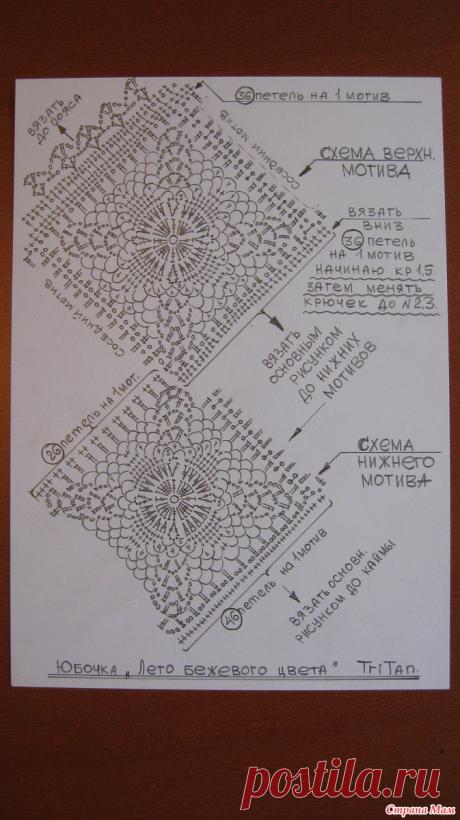 36 петель на 1 мотив
вязать
до пояса
соседний мотив
схема верхн.
мотива
вязать
вниз
36 петель
на 1 мотив
начинаю кр 1,5.
затем менять
крючек до №2.3.
соседний мотив
вязать
основным
рисунком
до нижних
мотивов
26 петель на 1 мот.
схема
нижнего
мотива
46 петель на 1 мотив
вязать основн.
рисунком до каймы
Юбочка „Лето бежевого цвета" TriTan.
postila.ru
Страна Мам